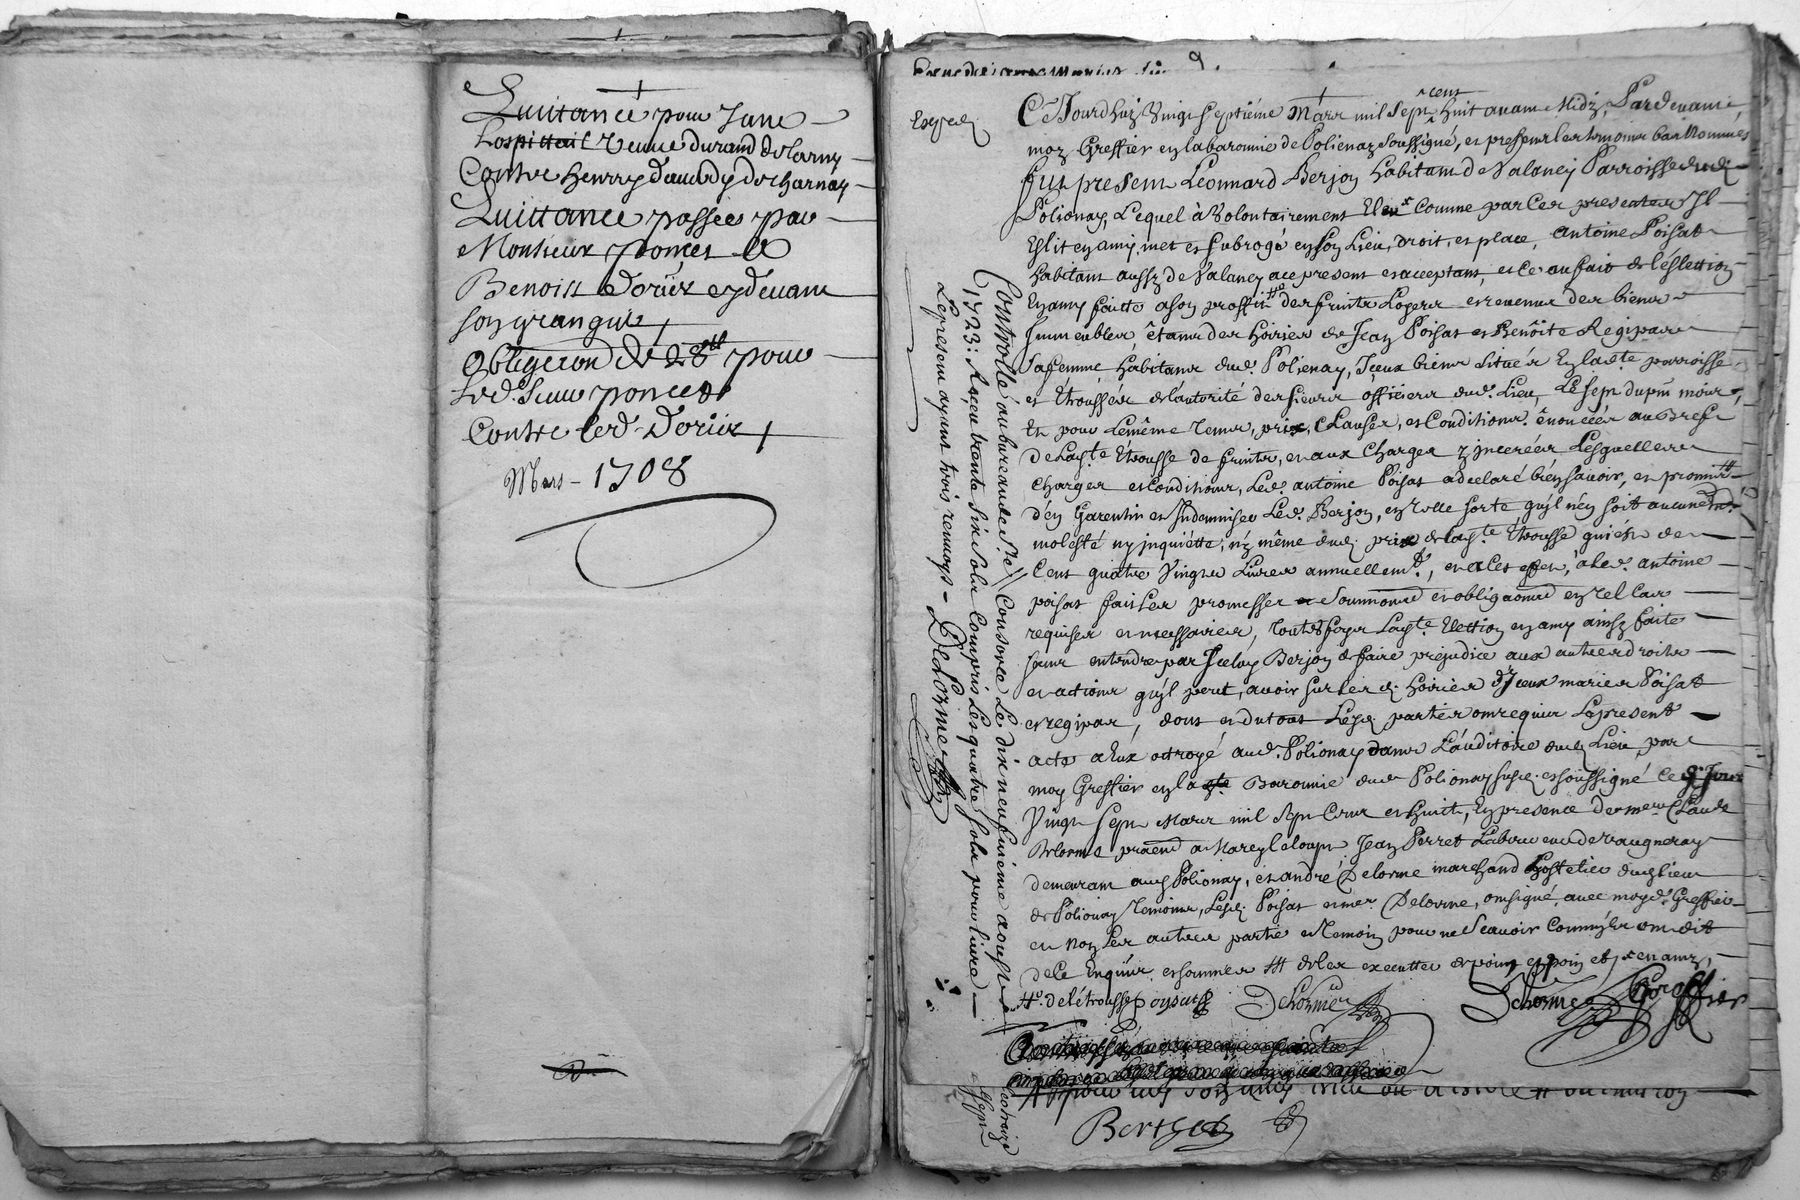 Quittance pour Jane
Lospittail veuve durand de
Contre henry daudy de charnay
Quittance passée par
Monsieur poncet
Benoist Doriez cy devant
son grangier
Obligeron de 28ll pour
led. Sieur poncet
Contre led. Doriez
Mars - 1708
Expedié
Ce Jourdhuy Vingt Septiéme Mars mil Sept cent huit avant Midy, Pardevant
moy Greffier en la baronnie de Polienay soussigné, et presents les temoins bas Nommés
fut present Leonnard Berjon habitant de Valancy Parroisse dud.
Polionay, Lequel à Volontairement Comme par Ces presentes Il
Eslit en amy, met et subrogé en son Lieu, droit, et place, Antoine Poisat
habitant aussy de Valancy a ce present et acceptant, et Ce au fait de l'eslection
En amy faitte a son proffit des fruits Loyers et revenus des biens
Immeubles, étants des hoiries de Jean Poisat et Benoîte Regipas
Sa femme habitans dud. Polienay, Iceux biens situés En lad.te parroisse
et Etroussés de l'autorité des sieurs officiers dud. Lieu, Le sept du pnt mois,
Et pour Le même Temps, prix, Clauses, et Conditions énoncées au Bref
de lad.te Etrousse de fruits, et aux Charges y incerées Lesquelles
Charges et Conditions, Led. antoine Poisat a declaré bien sauoir, et promis
d'en Garentir et Indemniser Led. Berjon, en telle sorte qu'il n'en soit aucunemt.
molesté ny inquiétté, n'y même dud. prix de lad.te Etrousse qui est de
Cent quatre Vingts Livres annuellemt., et a Cet effet, à led. antoine
poisat fait Les promesses et en tel Cas
requises et necessaires, touttesfoys Lad.te Elettion en amy ainsy faite
sans entendre par Iceluy Berjon de faire préjudice aux autres droits
et actions qu'il peut avoir sur les d. hoiries d'Iceux mariés Poisat
et regipas, dont et du tout Lesd. parties ont requis Le present
acte a Eux octroyé aud. Polionay dans L'auditoire dud. Lieu par
moy Greffier en la Baronnie dud. Polionay susd. et soussigné Ce d. Jour
Vingt Sept Mars mil Sept Cents et huit, En presence de me. Claude
Delorme a Marcy le loup Jean Perret Laboureur de vaugneray
demeurant aud. Polionay, et andré Delorme marchand hostelier dud. lieu
de Polionay Temoins, Lesd. Poisat et mes. Delorme, ont signé avec moy d. Greffier
et non Les autres partie et Temoin pour ne Scauoir Comm'ils ont dit
de Ce Enquis et sommés
de létrousse Poysat Delorme Delorme Greffier
Controllé au bureau de Ste Consorce Le dix neufuiéme aoust
1723: Reçeu trente six sols Compris Les quatre sols pour livre
Le present ayant trois renvoys - Delorme
Berthet